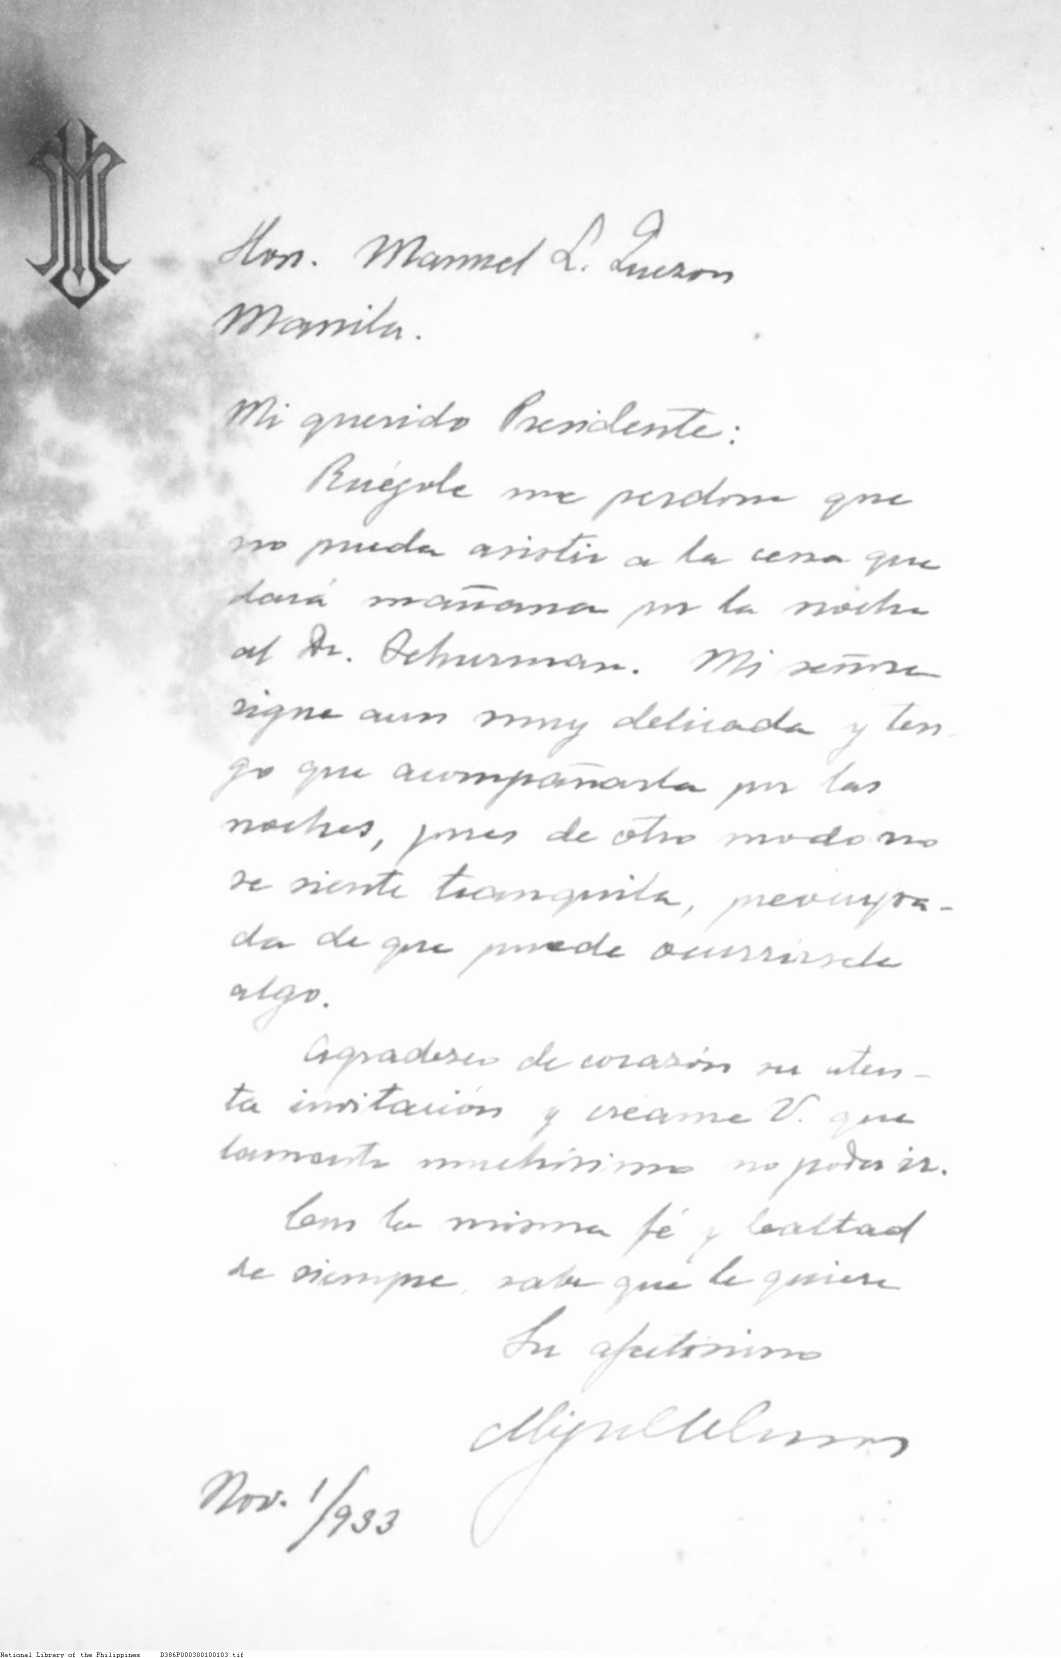 Hon. Manuel L. Quezon
Manila.
Mi querido Presidente:
Ruégole me perdone que
no pueda asistir a la cena que
dará mañana por la noche
al Dr. Schurman. Mi señora
sigue aun muy delicada y ten-
go que acompañarla por las
noches, pues de otro modo no
se siente tranquila, preocupa-
da de que puede ocurrirsele
algo.
Agradezco de corazón su aten-
ta invitación y créame V. que
lamento muchísimo no poder ir.
Con la misma fé y lealtad
de siempre, sabe que le quiere
Su afectísimo
Miguel
Nov. 1/933
National Library of the Philippines D386P000300100103.tif